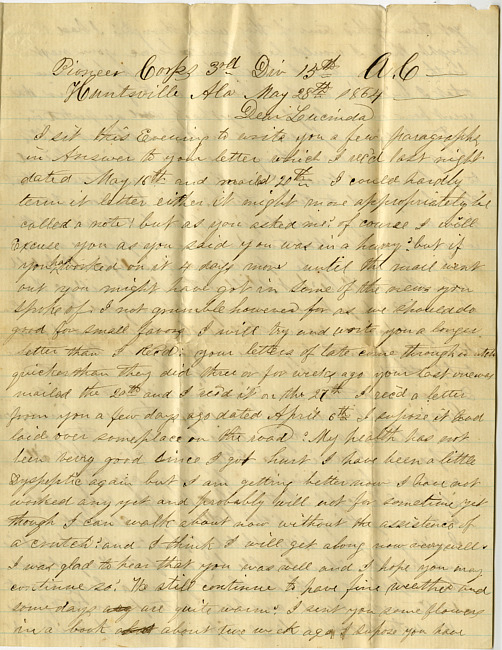 Pioneer Corps 3rd Div 15th A.C
Huntsville Ala May 28th 1864
Dear Lucinda
I sit this Evening to write you a few paragraphs
in Answer to your letter which I rec'd last night
dated May 16th and mailed 20th I could hardly
term it letter either it might more appropriately be
called a note! but as you asked me; of course I will
Excuse you as you said you was in a hurry! but if
you had worked on it 4 days more until the mail went
out you might have got in some of the news you
spoke of. I not grumble however for as we should do
good for small favors I will try and write you a longer
letter than I Recd. your letters of late come through
quicker than they did three or for weeks ago your last one was
mailed the 20th and I rec'd it on the 27th I rec'd a letter
from you a few days ago dated April 6th I supose it had
laid over someplace on the road? My health has not
been very good since I got hurt I have been a little
Dyspeptic again but I am getting better now I have not
worked any yet and probably will not for sometime yet
though I can walk about now without the assistence of
a crutch? and I think I will get along now very well.
I was glad to hear that you was well and I hope you may
continue so. We still continue to have fine weather and
some days are quite warm. I sent you some flowers
in a book about two week ago I supose you have